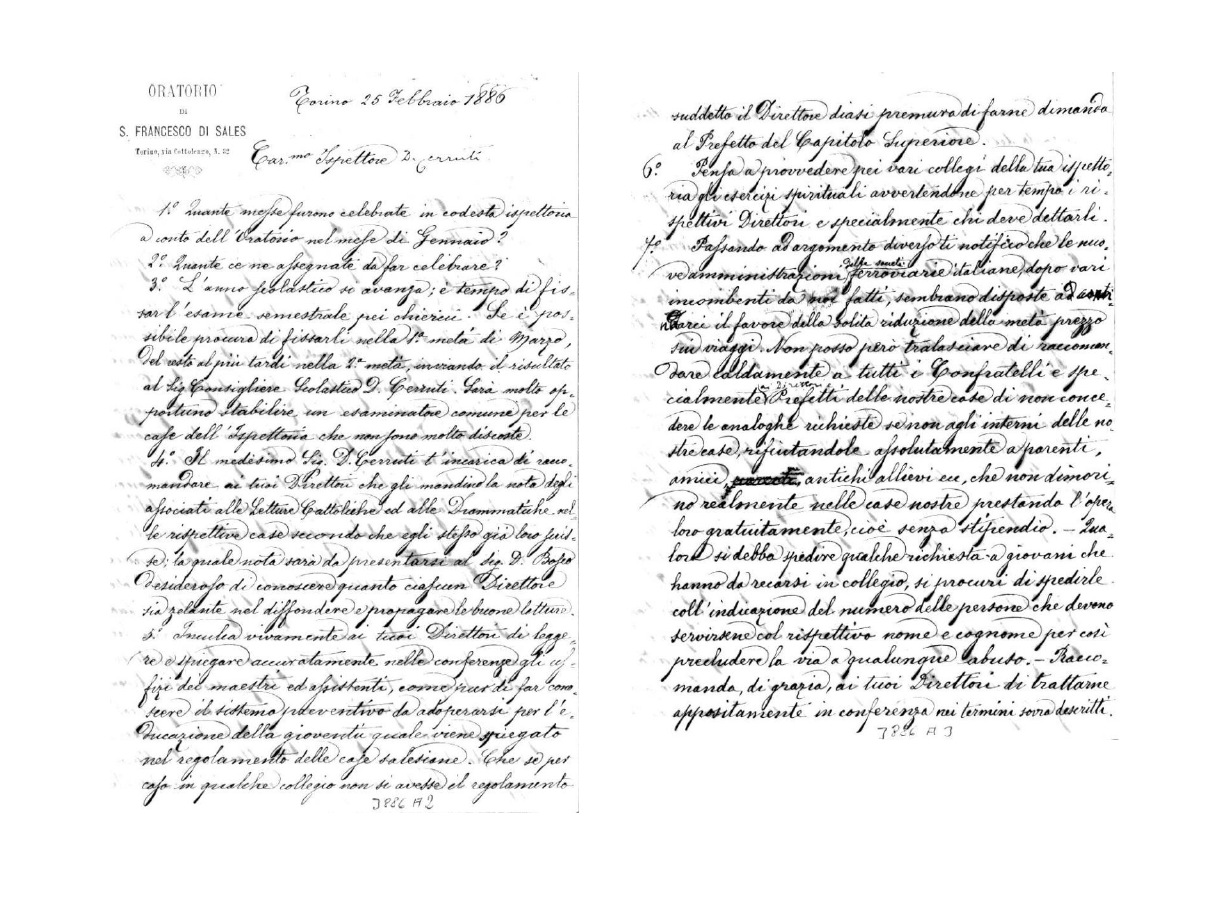 ORATORIO
DI
S. FRANCESCO DI SALES
Torino, via Cottolengo, N. 32
Torino 25 Febbraio 1886
Car.mo Ispettore D. Cerruti
1.º Quante messe furono celebrate in codesta ispettoria
a conto dell'Oratorio nel mese di Gennaio?
2.º Quante ce ne assegnate da far celebrare?
3.º L'anno scolastico si avanza; è tempo di fis-
sar l'esame semestrale pei chierici. Se è pos-
sibile procura di fissarli nella 1.ª metà di Marzo,
del resto al più tardi nella 2.ª metà, inviando il risultato
al Sig. Consigliere Scolastico D. Cerruti. Sarà molto op-
portuno stabilire un esaminatore comune per le
case dell'Ispettoria che non sono molto discoste.
4.º Il medesimo Sig. D. Cerruti t'incarica di racco-
mandare ai tuoi Direttori che gli mandino la nota degli
associati alle Letture Cattoliche ed alle Drammatiche nel-
le rispettive case secondo che egli stesso già loro scris-
se; la quale nota sarà da presentarsi al Sig. D. Bosco
desideroso di conoscere quanto ciascun Direttore
sia zelante nel diffondere e propagare le buone letture.
5.º Inculca vivamente ai tuoi Direttori di legge-
re e spiegare accuratamente nelle conferenze gli uf-
fizi dei maestri ed assistenti, come pur di far cono-
scere il sistema preventivo da adoperarsi per l'e-
ducazione della gioventù quale viene spiegato
nel regolamento delle case salesiane. Che se per
caso in qualche collegio non si avesse il regolamento
3886 A 2
suddetto il Direttore diasi premura di farne dimanda
al Prefetto del Capitolo Superiore.
6.º Pensa a provvedere pei vari collegi della tua ispetto-
ria gli esercizi spirituali avvertendone per tempo i ri-
spettivi Direttori e specialmente chi deve dettarli.
7.º Passando ad argomento diverso ti notifico che le nuo-
ve amministrazioni ferroviarie italiane, dopo vari
incombenti da noi fatti, sembrano disposte ad conti-
nuarci il favore della solita riduzione della metà prezzo
sui viaggi. Non posso però tralasciare di raccoman-
dare caldamente a tutti i Confratelli e spe-
ai Direttori
cialmente Prefetti delle nostre case di non conce-
dere le analoghe richieste se non agli interni delle no-
stre case, rifiutandole assolutamente a parenti,
amici, antichi allievi ecc, che non dimori-
no realmente nelle case nostre prestando l'opera
loro gratuitamente, cioè senza stipendio. – Qua-
lora si debba spedire qualche richiesta a giovani che
hanno da recarsi in collegio, si procuri di spedirle
coll'indicazione del numero delle persone che devono
servirsene col rispettivo nome e cognome per così
precludere la via a qualunque abuso. – Racco-
manda, di grazia, ai tuoi Direttori di trattarne
appositamente in conferenza nei termini sovra descritti.
3886 A 3